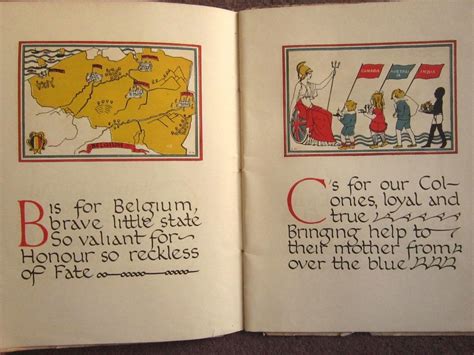 BELGIUM
B is for Belgium,
brave little state
So valiant for
Honour so reckless
of Fate
CANADA
AUSTRALIA
INDIA
C's for our Col-
onies, loyal and
true
Bringing help to
their mother from
over the blue